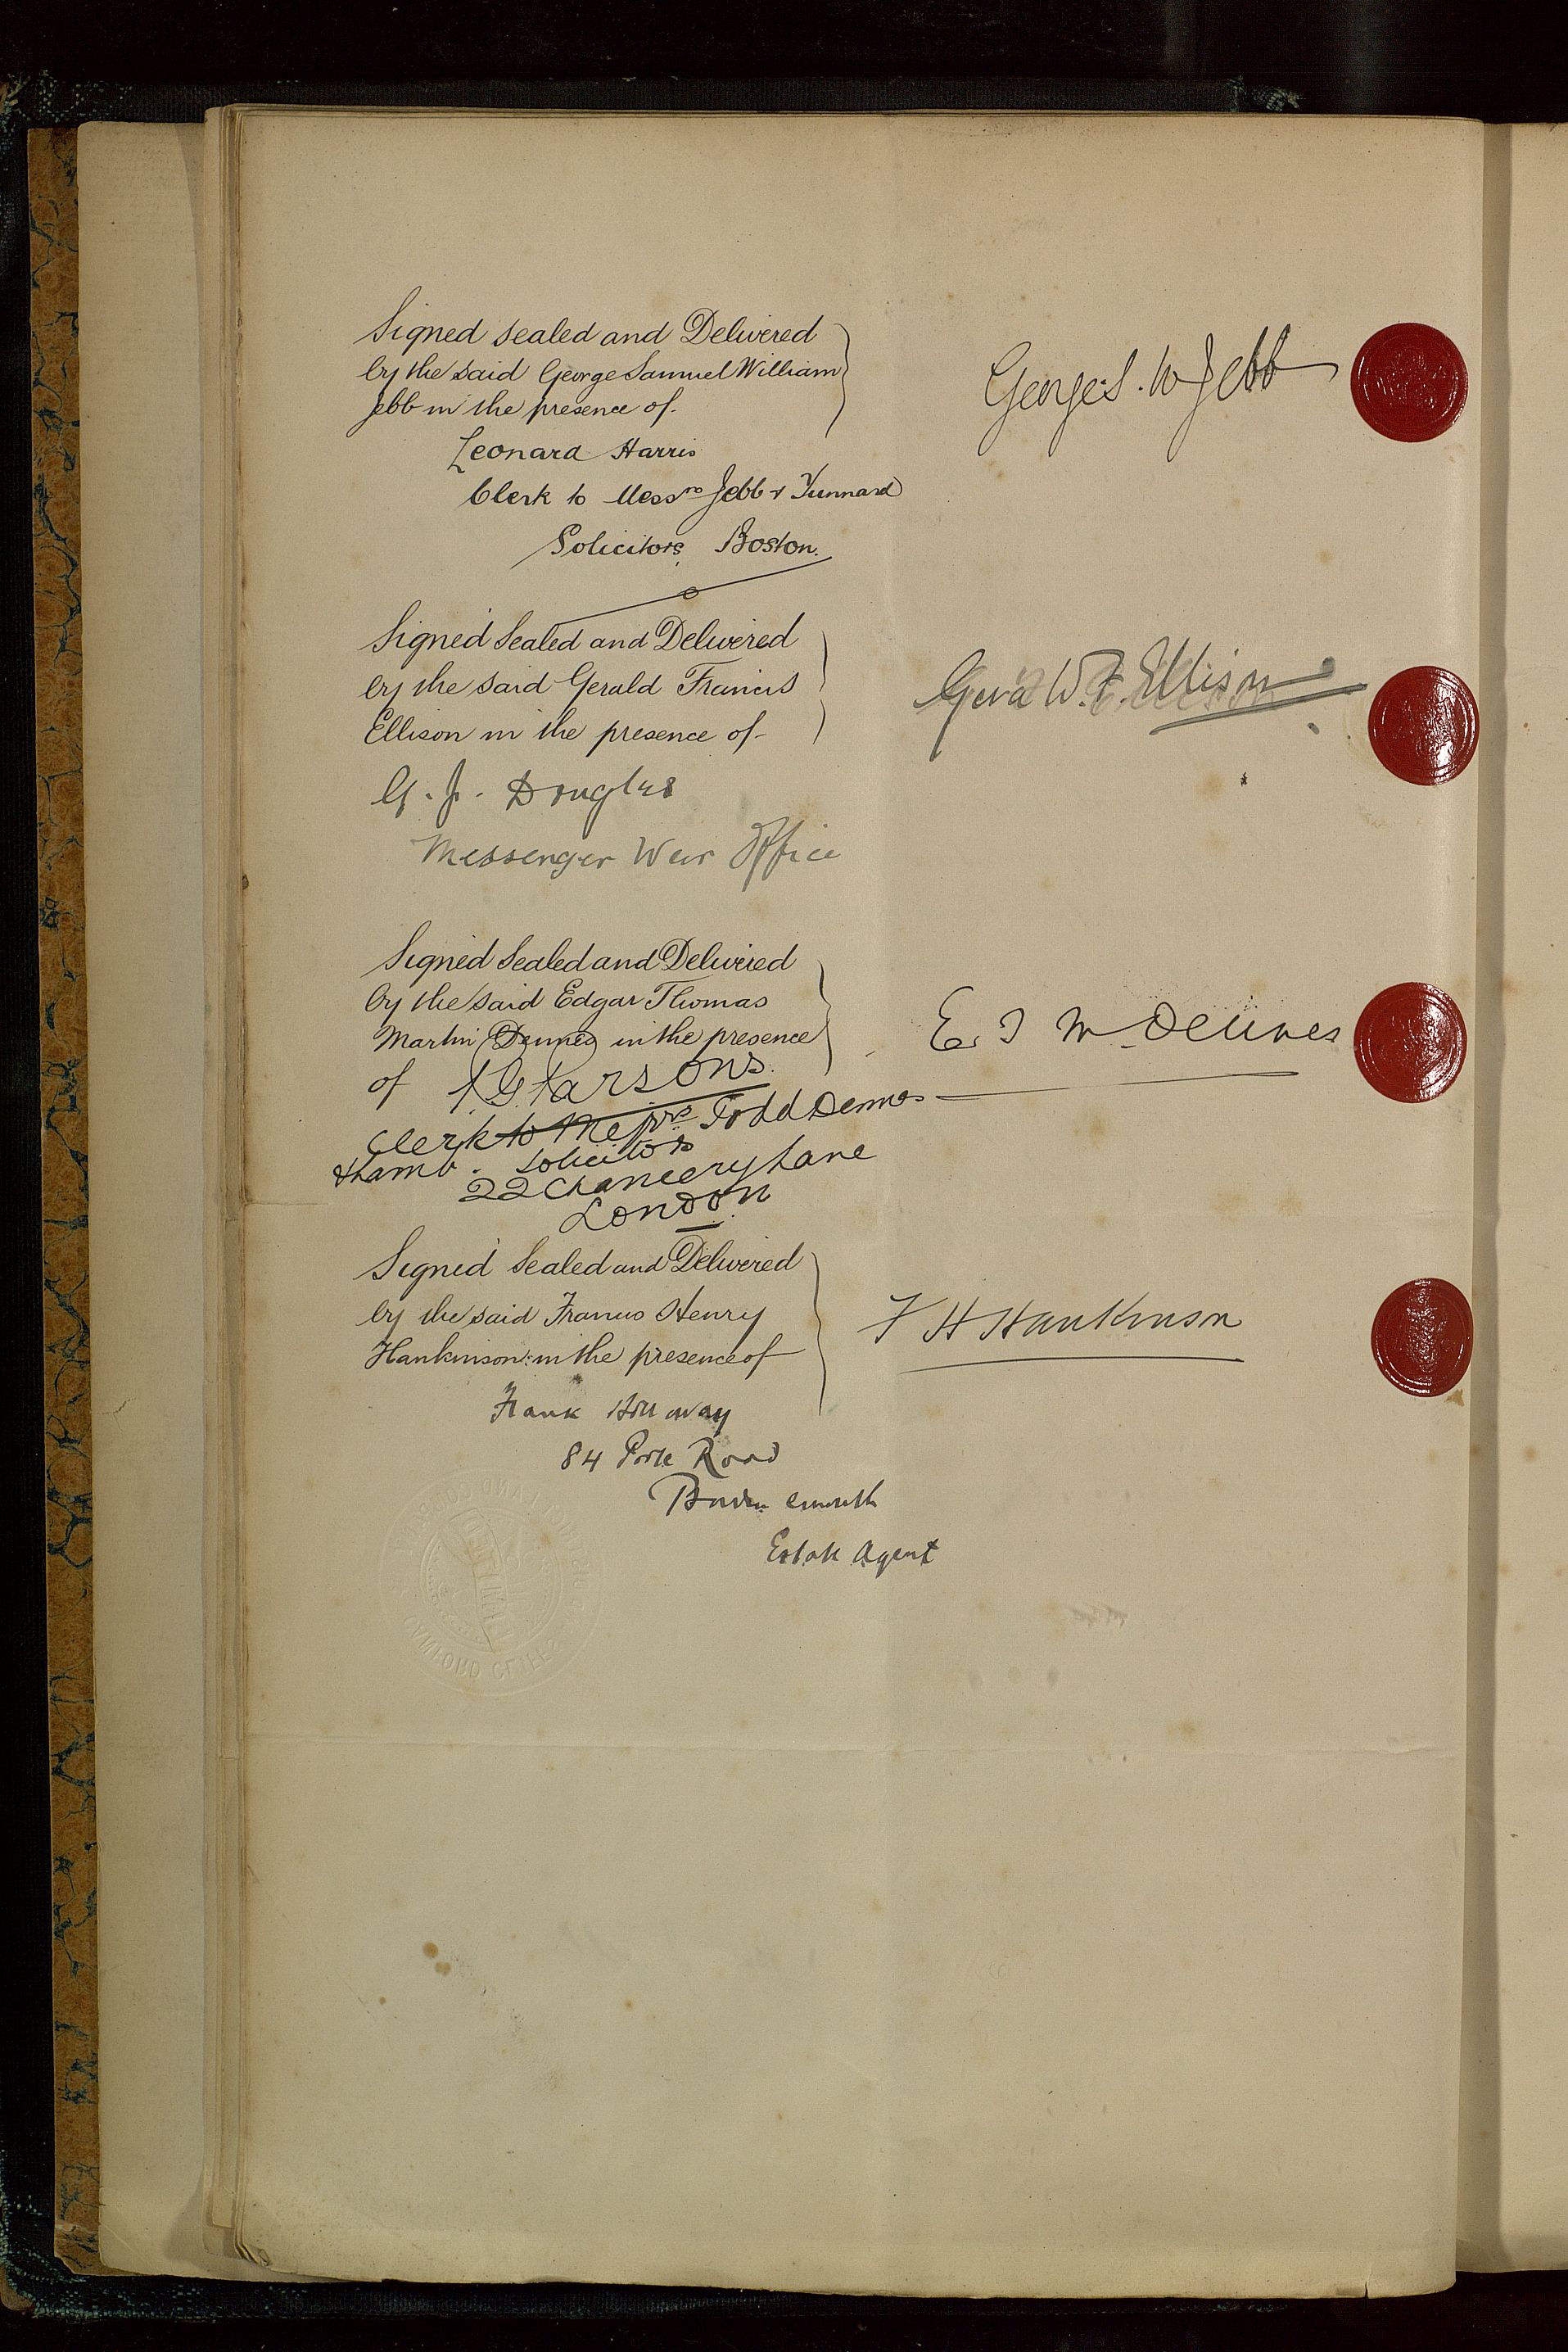 Signed sealed and Delivered
by the said George Samuel William
Jebb in the presence of
George S. W Jebb
Leonard Harris
Clerk to Messrs Jebb & Tunnard
Solicitors, Boston.
Signed Sealed and Delivered
by the said Gerald Francis
Ellison in the presence of
Gerald F. Ellison
G. J. Douglas
Messenger War Office
Signed Sealed and Delivered
by the said Edgar Thomas
Martin Dennes in the presence
E. T M Dennes
of Parsons.
Clerk to Messrs Todd Dennes
& Lamb. Solicitors
22 Chancery Lane
London
Signed Sealed and Delivered
by the said Francis Henry
Hankinson in the presence of
F H Hankinson
Frank Holloway
84 Road
Bournemouth
Estate Agent